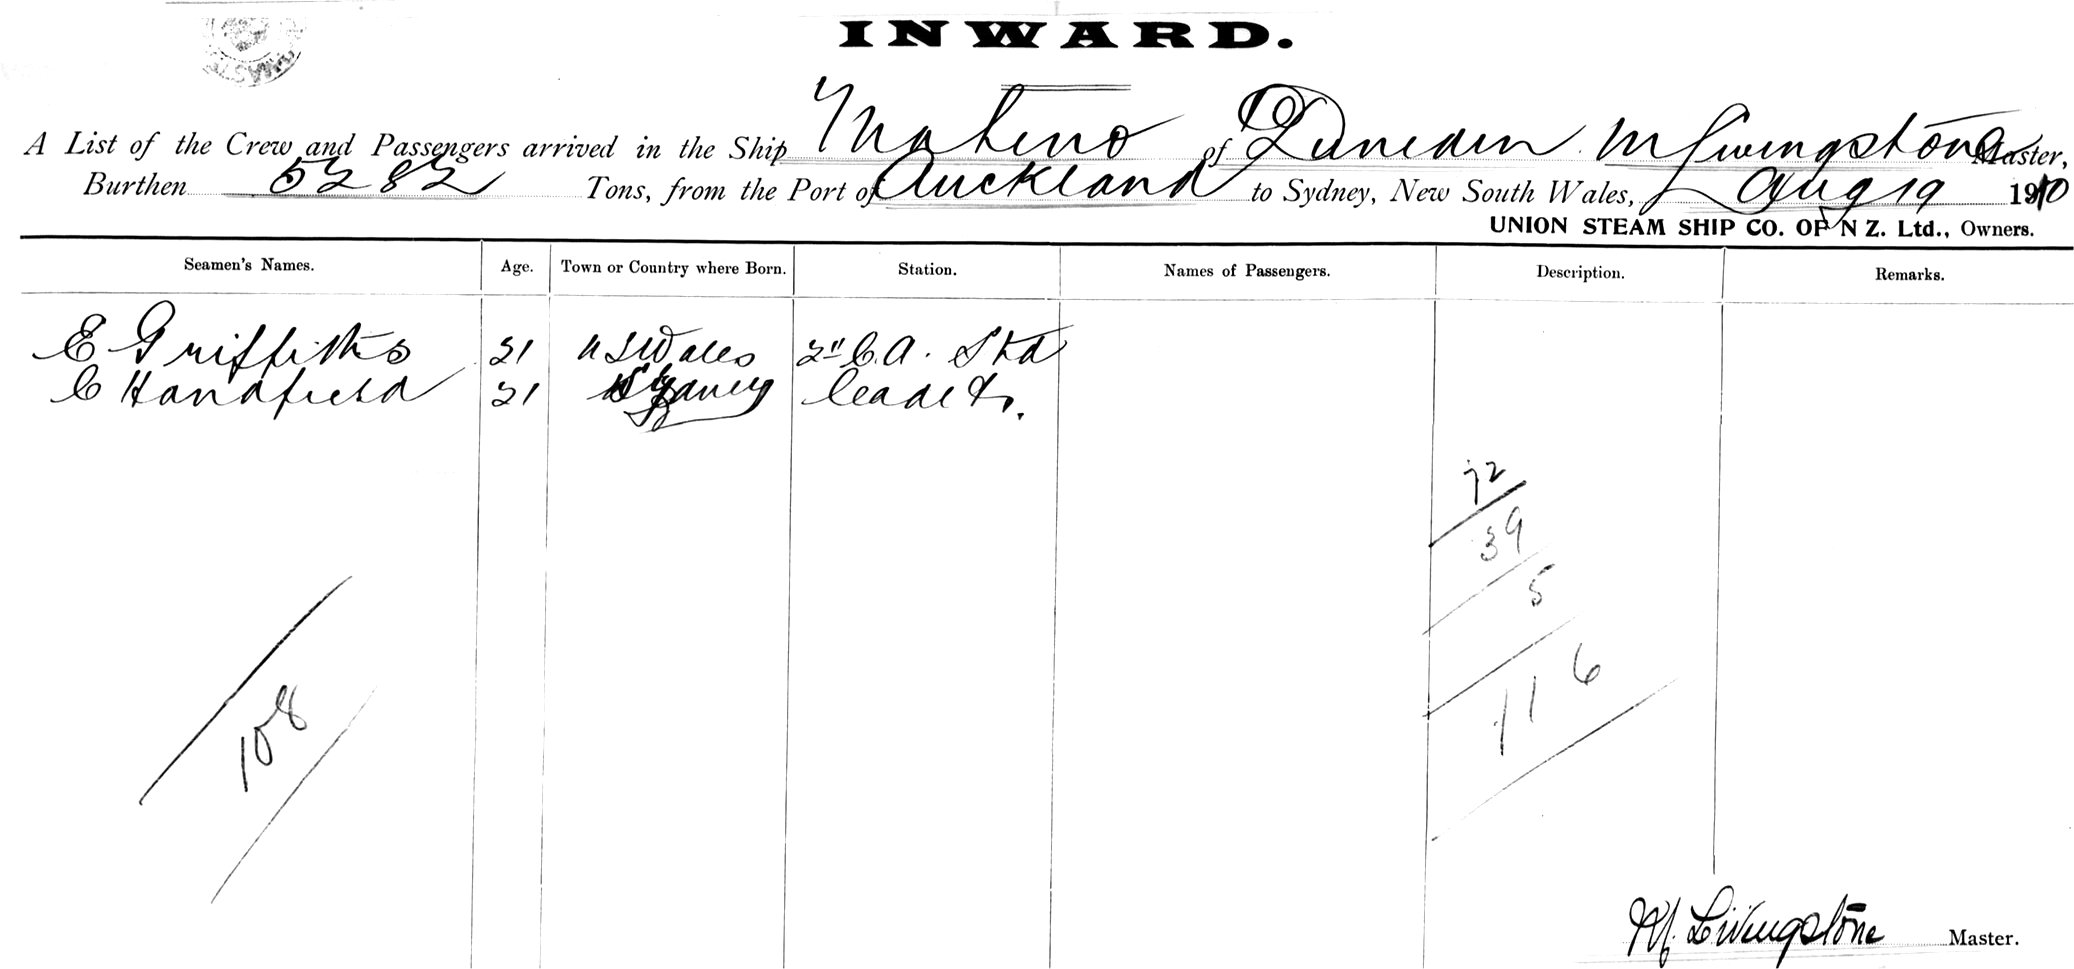 INWARD.
A List of the Crew and Passengers arrived in the Ship Maheno of Dunedin M Livingstone Master,
Burthen 5282 Tons, from the Port of Auckland to Sydney, New South Wales, Aug 19 1910
UNION STEAM SHIP CO. OF N Z. Ltd., Owners.
Seamen's Names. Age. Town or Country where Born. Station. Names of Passengers. Description. Remarks.
E Griffiths 21 N S Wales 2" C. A. Std
C Handfield 21 Sydney Cadet
72
39
5
116
108
M. Livingstone Master.